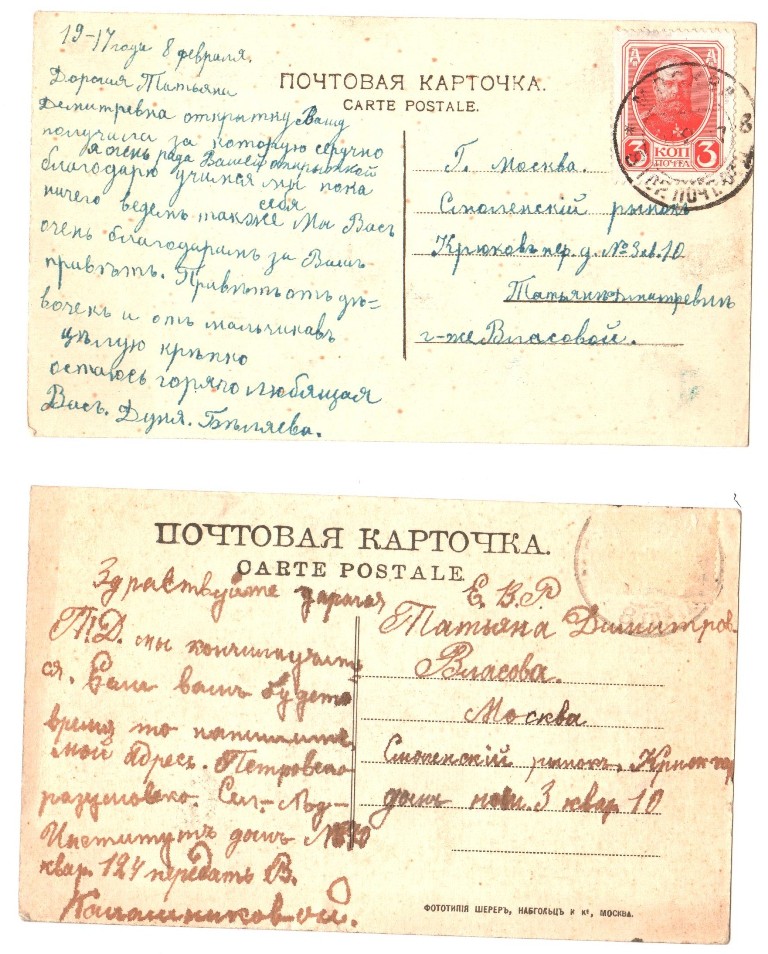 19-17 года 8 февраля.
Дорогая Татьяна
Демитревна открытку Вашу
получила за которую сердечно
я очень рада Вашей открыткой
благодарю учимся мы пока
ничего ведем себя
также Мы Васъ
очень благодаримъ за Вашъ
привѣтъ. Привѣтъ отъ дѣ-
вочекъ и отъ мальчикавъ
цѣлую крѣпко
остаюсь горячо любящая
Васъ. Дуня. Бѣляева.
ПОЧТОВАЯ КАРТОЧКА.
CARTE POSTALE.
3 КОП 3
ПОЧТ.
Г. Москва.
Смоленскій рынокъ
Крюковъ пер. д. № 3 кв. 10
Татьянѣ Дмитревнѣ
г-же Власовой.
ПОЧТОВАЯ КАРТОЧКА.
CARTE POSTALE.
Здраствуйте дарагая
Т.Д. мы кончили учить
ся. Если вамъ будетъ
время то напишите,
мой адресъ. Петровско
разумовско. Сел.-
Институтъ домъ №
квар. 124 передать В.
Калашниковой.
Е. В. Р
Татьяна Димитров.
Власова.
Москва
Смоленскій рынокъ. Крюк пер
домъ ном. 3 квар 10
ФОТОТИПІЯ ШЕРЕРЪ, НАБГОЛЬЦЪ И К°, МОСКВА.